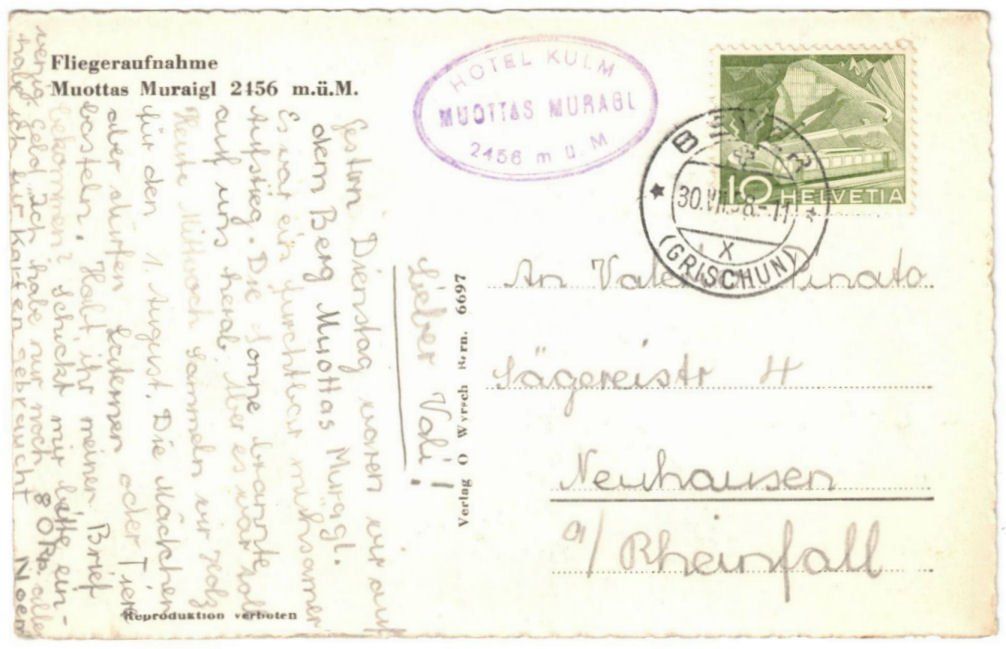 Fliegeraufnahme
Muottas Muraigl 2456 m.ü.M.
HOTEL KULM
MUOTTAS MURAGL
2456 m ü. M
10 HELVETIA
BEVER
30.VII.58.-11
X
(GRISCHUN)
An Valentin Pinato
Sägereistr 4
Neuhausen
a/ Rheinfall
Verlag O Wyrsch Bern. 6697
Lieber Vali!
Gestern Dienstag waren wir auf
dem Berg Muottas Muraggl.
Es war ein furchtbar mühsamer
Aufstieg. Die Sonne brannte
auf uns herab. Aber es war toll
Heute Mittwoch sammeln wir Holz
für den 1. August. Die Mädchen
aber dürfen Laternen oder Tiere
basteln. Habt ihr meinen Brief
bekommen? Schickt mir bitte ein-
wenig Geld ich habe nur noch 80 Rp. alles
habe ich für Karten gebraucht
Reproduktion verboten